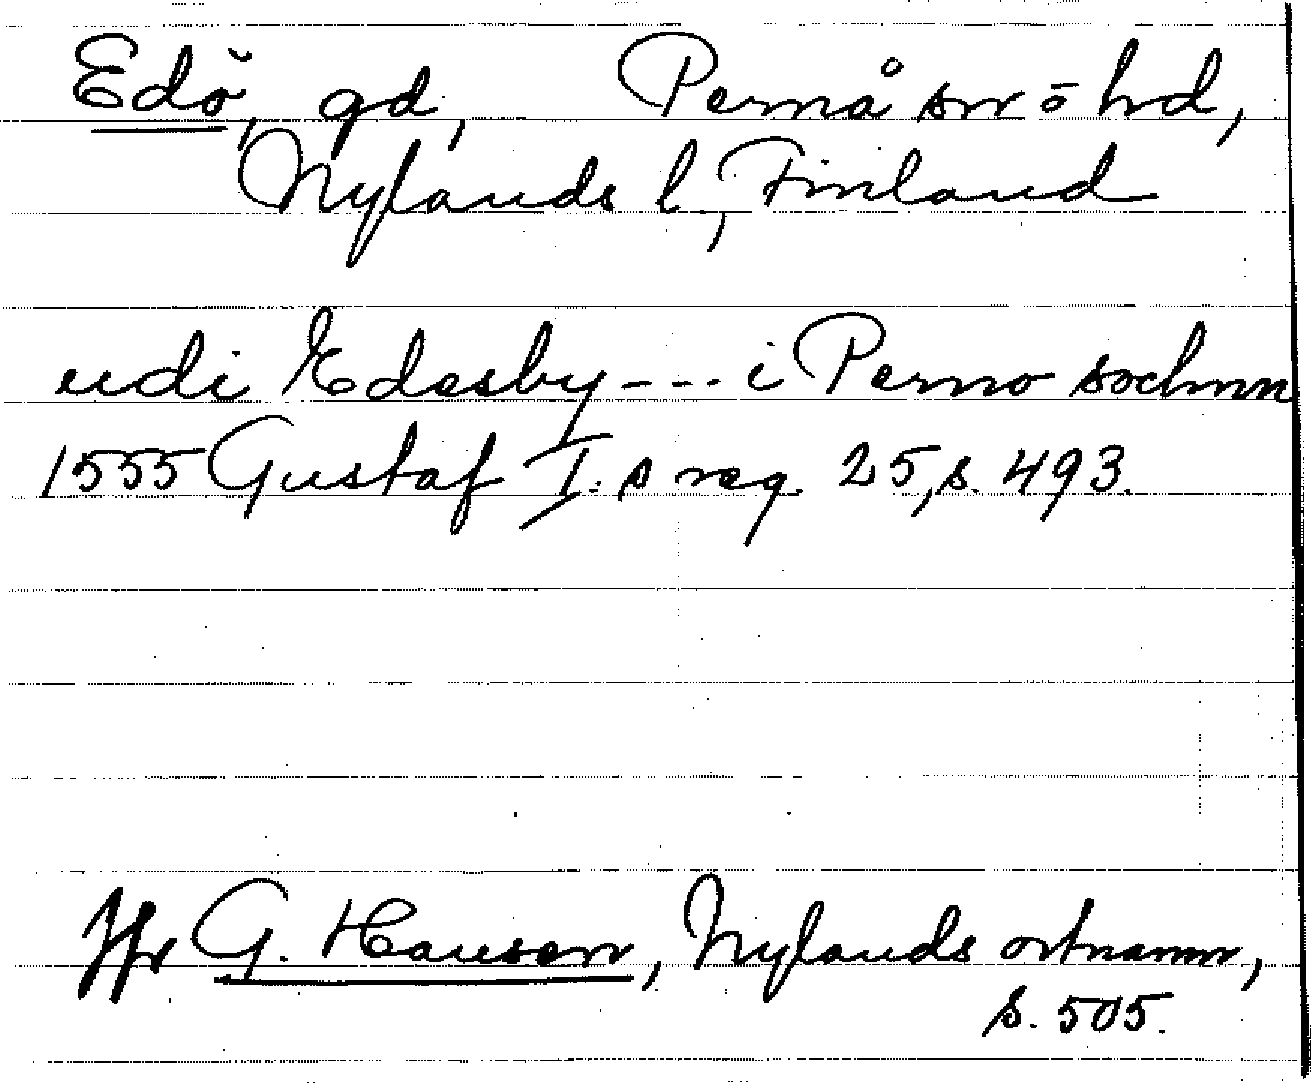 Edö, gd, Pernå sn o hd,
Nylands l, Finland
udi Edesby --- i Perno sochnn
1555 Gustaf I:s reg. 25, s. 493.
Jfr G. Hausen, Nylands ortnamn,
s. 505.